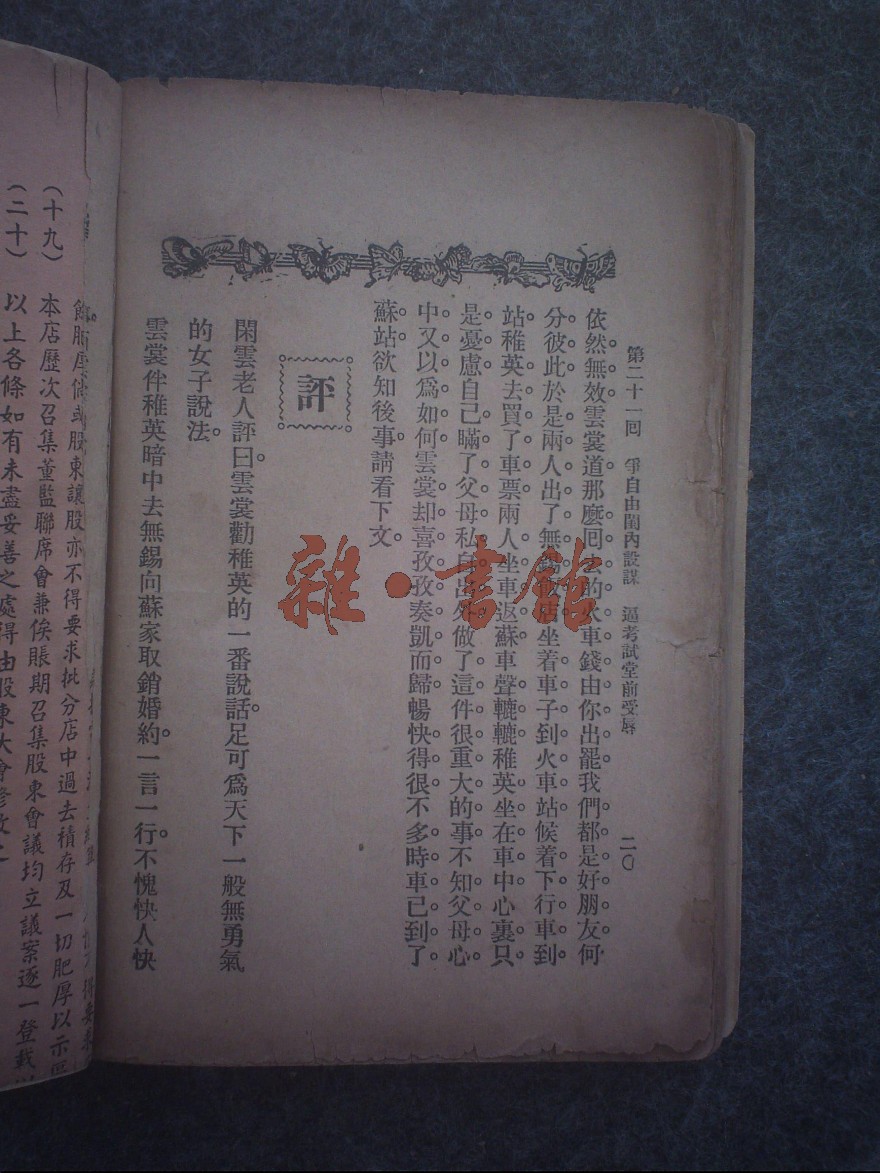 第二十一回 爭自由閨內設謀 逼考試堂前受辱 二〇
依然無效雲裳道那麼回去的火車錢由你出罷我們都是好朋友何
分彼此於是兩人出了無錫飯店坐着車子到火車站候着下行車到
站稚英去買了車票兩人坐車返蘇車聲轆轆稚英坐在車中心裏只
是憂慮自己瞞了父母私自出外做了這件很重大的事不知父母心
中又以爲如何雲裳却喜孜孜奏凱而歸暢快得很不多時車已到了
蘇站欲知後事請看下文。
評
閑雲老人評曰雲裳勸稚英的一番說話足可爲天下一般無勇氣
的女子說法。
雲裳伴稚英暗中去無錫向蘇家取銷婚約。一言一行。不愧快人快
雜·書館
股東讓股亦不得要求批分店中過去積存及一切肥厚以示
(十九) 本店歷次召集董監聯席會兼俟賬期召集股東會議均立議案逐一登載
(二十) 以上各條如有未盡妥善之處得由股東大會修改之